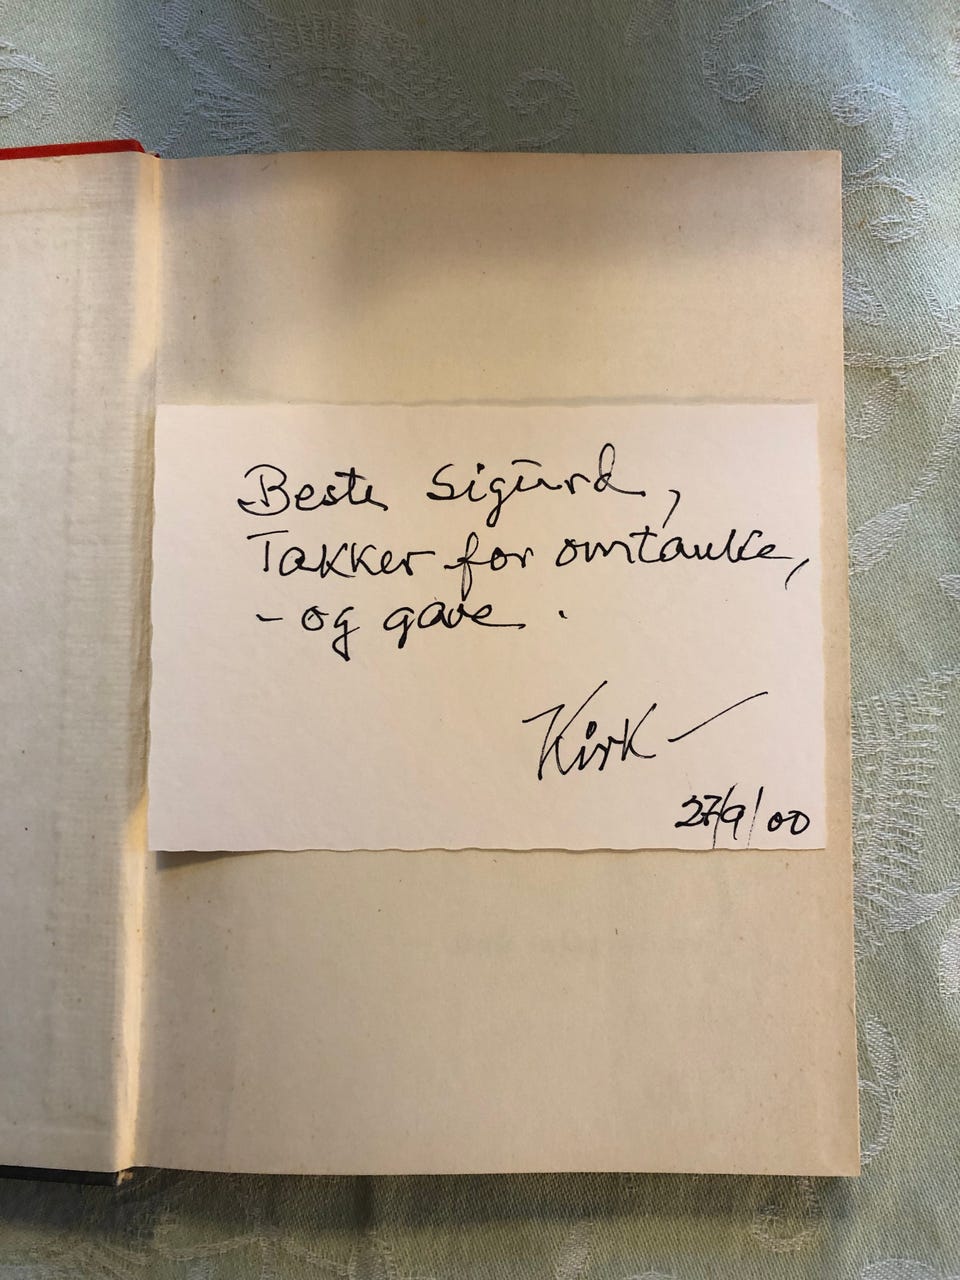 Beste Sigurd,
Takker for omtanke,
- og gave.
Kirk
27/9/00